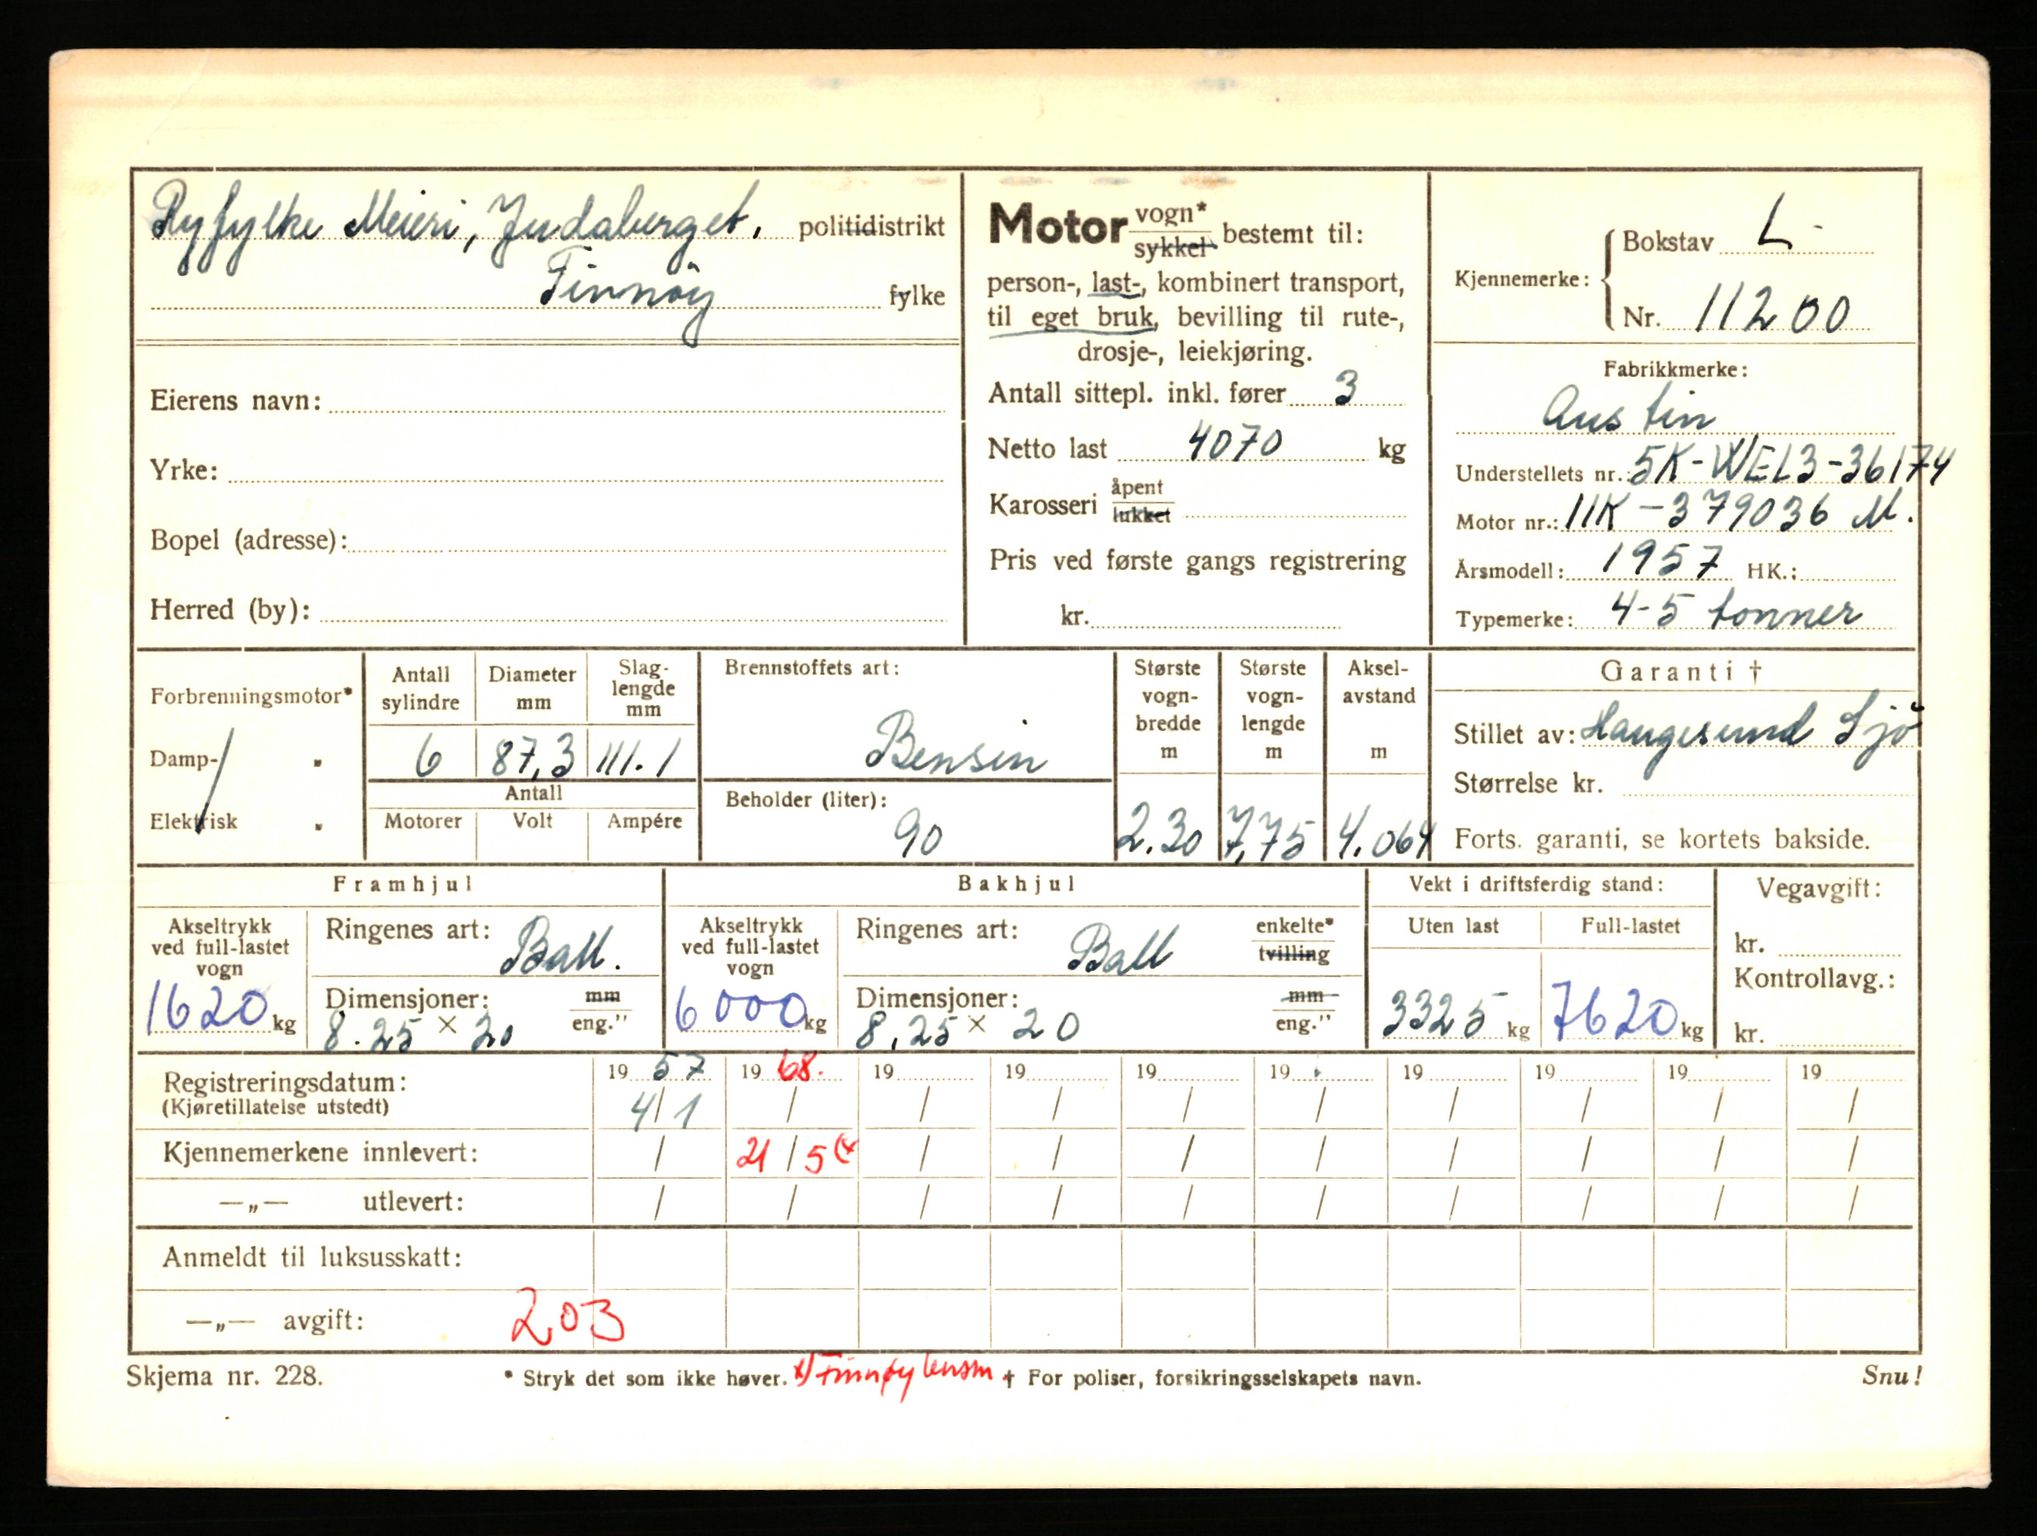 Ryfylke Meieri, Judaberget, politidistrikt
Finnøy fylke
Eierens navn:
Yrke:
Bopel (adresse):
Herred (by):
Motor vogn* sykkel bestemt til:
person-, last-, kombinert transport,
til eget bruk, bevilling til rute-,
drosje-, leiekjøring.
Antall sittepl. inkl. fører 3
Netto last 4070 kg
Karosseri åpent lukket
Pris ved første gangs registrering
kr.
Kjennemerke: Bokstav L
Nr. 11200
Fabrikkmerke:
Austin
Understellets nr.: 5K-WEL3-36174
Motor nr.: 11K-379036 M.
Årsmodell: 1957 HK.:
Typemerke: 4-5 tonner
Forbrenningsmotor*
Damp- "
Elektrisk "
Antall sylindre 6
Diameter mm 87,3
Slaglengde mm 111.1
Antall
Motorer Volt Ampére
Brennstoffets art:
Bensin
Beholder (liter):
90
Største vogn-bredde m 2.30
Største vogn-lengde m 7,75
Aksel-avstand m 4.064
Garanti †
Stillet av: Haugesund Sjø
Størrelse kr.
Forts. garanti, se kortets bakside.
Framhjul
Akseltrykk ved full-lastet vogn 1620 kg
Ringenes art: Ball.
Dimensjoner: mm eng."
8.25 × 20
Bakhjul
Akseltrykk ved full-lastet vogn 6000 kg
Ringenes art: Ball enkelte* tvilling
Dimensjoner: mm eng."
8,25 × 20
Vekt i driftsferdig stand:
Uten last 3325 kg
Full-lastet 7620 kg
Vegavgift:
kr.
Kontrollavg.:
kr.
Registreringsdatum: 1957 1968. 19 19 19 19 19 19 19 19
(Kjøretillatelse utstedt) 4/1 / / / / / / / / /
Kjennemerkene innlevert: / 21/5 (* / / / / / / / /
—„— utlevert: / / / / / / / / / /
Anmeldt til luksusskatt:
—„— avgift: 203
Skjema nr. 228. * Stryk det som ikke høver. *) Finnøy lensm † For poliser, forsikringsselskapets navn. Snu!